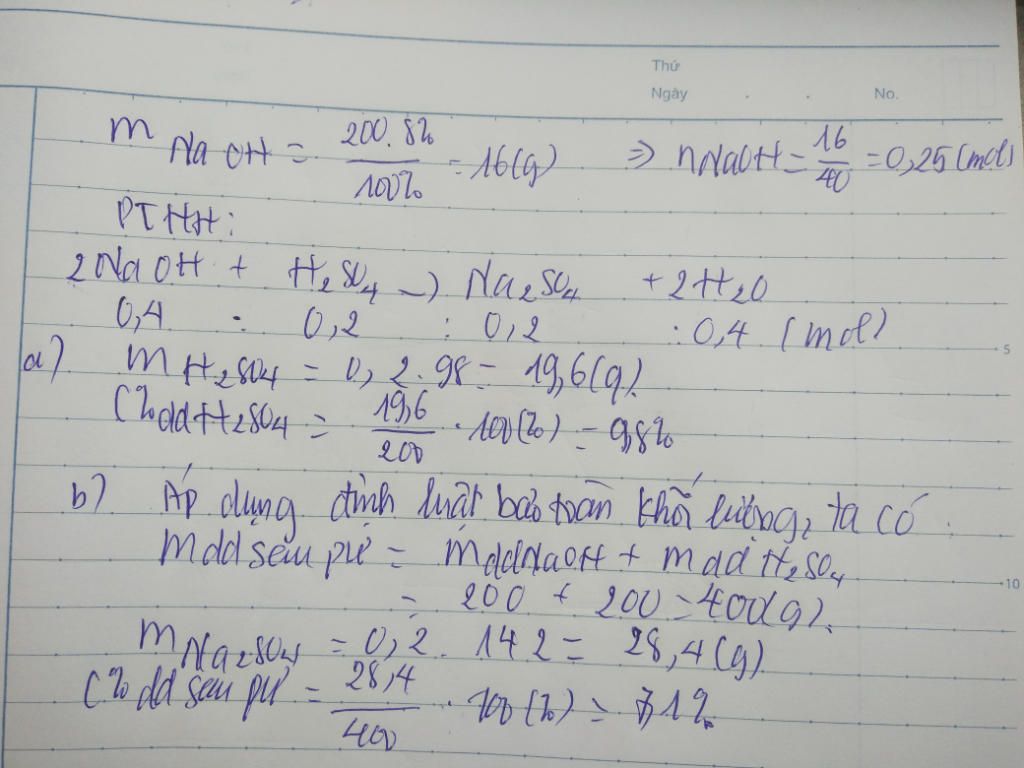 Thứ
Ngày . . No.
m NaOH = 200.8% / 100% = 16(g) => nNaOH = 16/40 = 0,25 (mol)
PTHH:
2NaOH + H2SO4 -> Na2SO4 + 2H2O
0,4 : 0,2 : 0,2 : 0,4 (mol)
a) mH2SO4 = 0,2.98 = 19,6(g).
C%ddH2SO4 = 19,6/200 . 100(%) = 9,8%
5
b) Áp dụng định luật bảo toàn khối lượng, ta có:
mdd sau pư = mddNaOH + mddH2SO4
= 200 + 200 = 400(g).
10
mNa2SO4 = 0,2. 142 = 28,4(g)
C% dd sau pư = 28,4/400 . 100(%) = 7,1%.